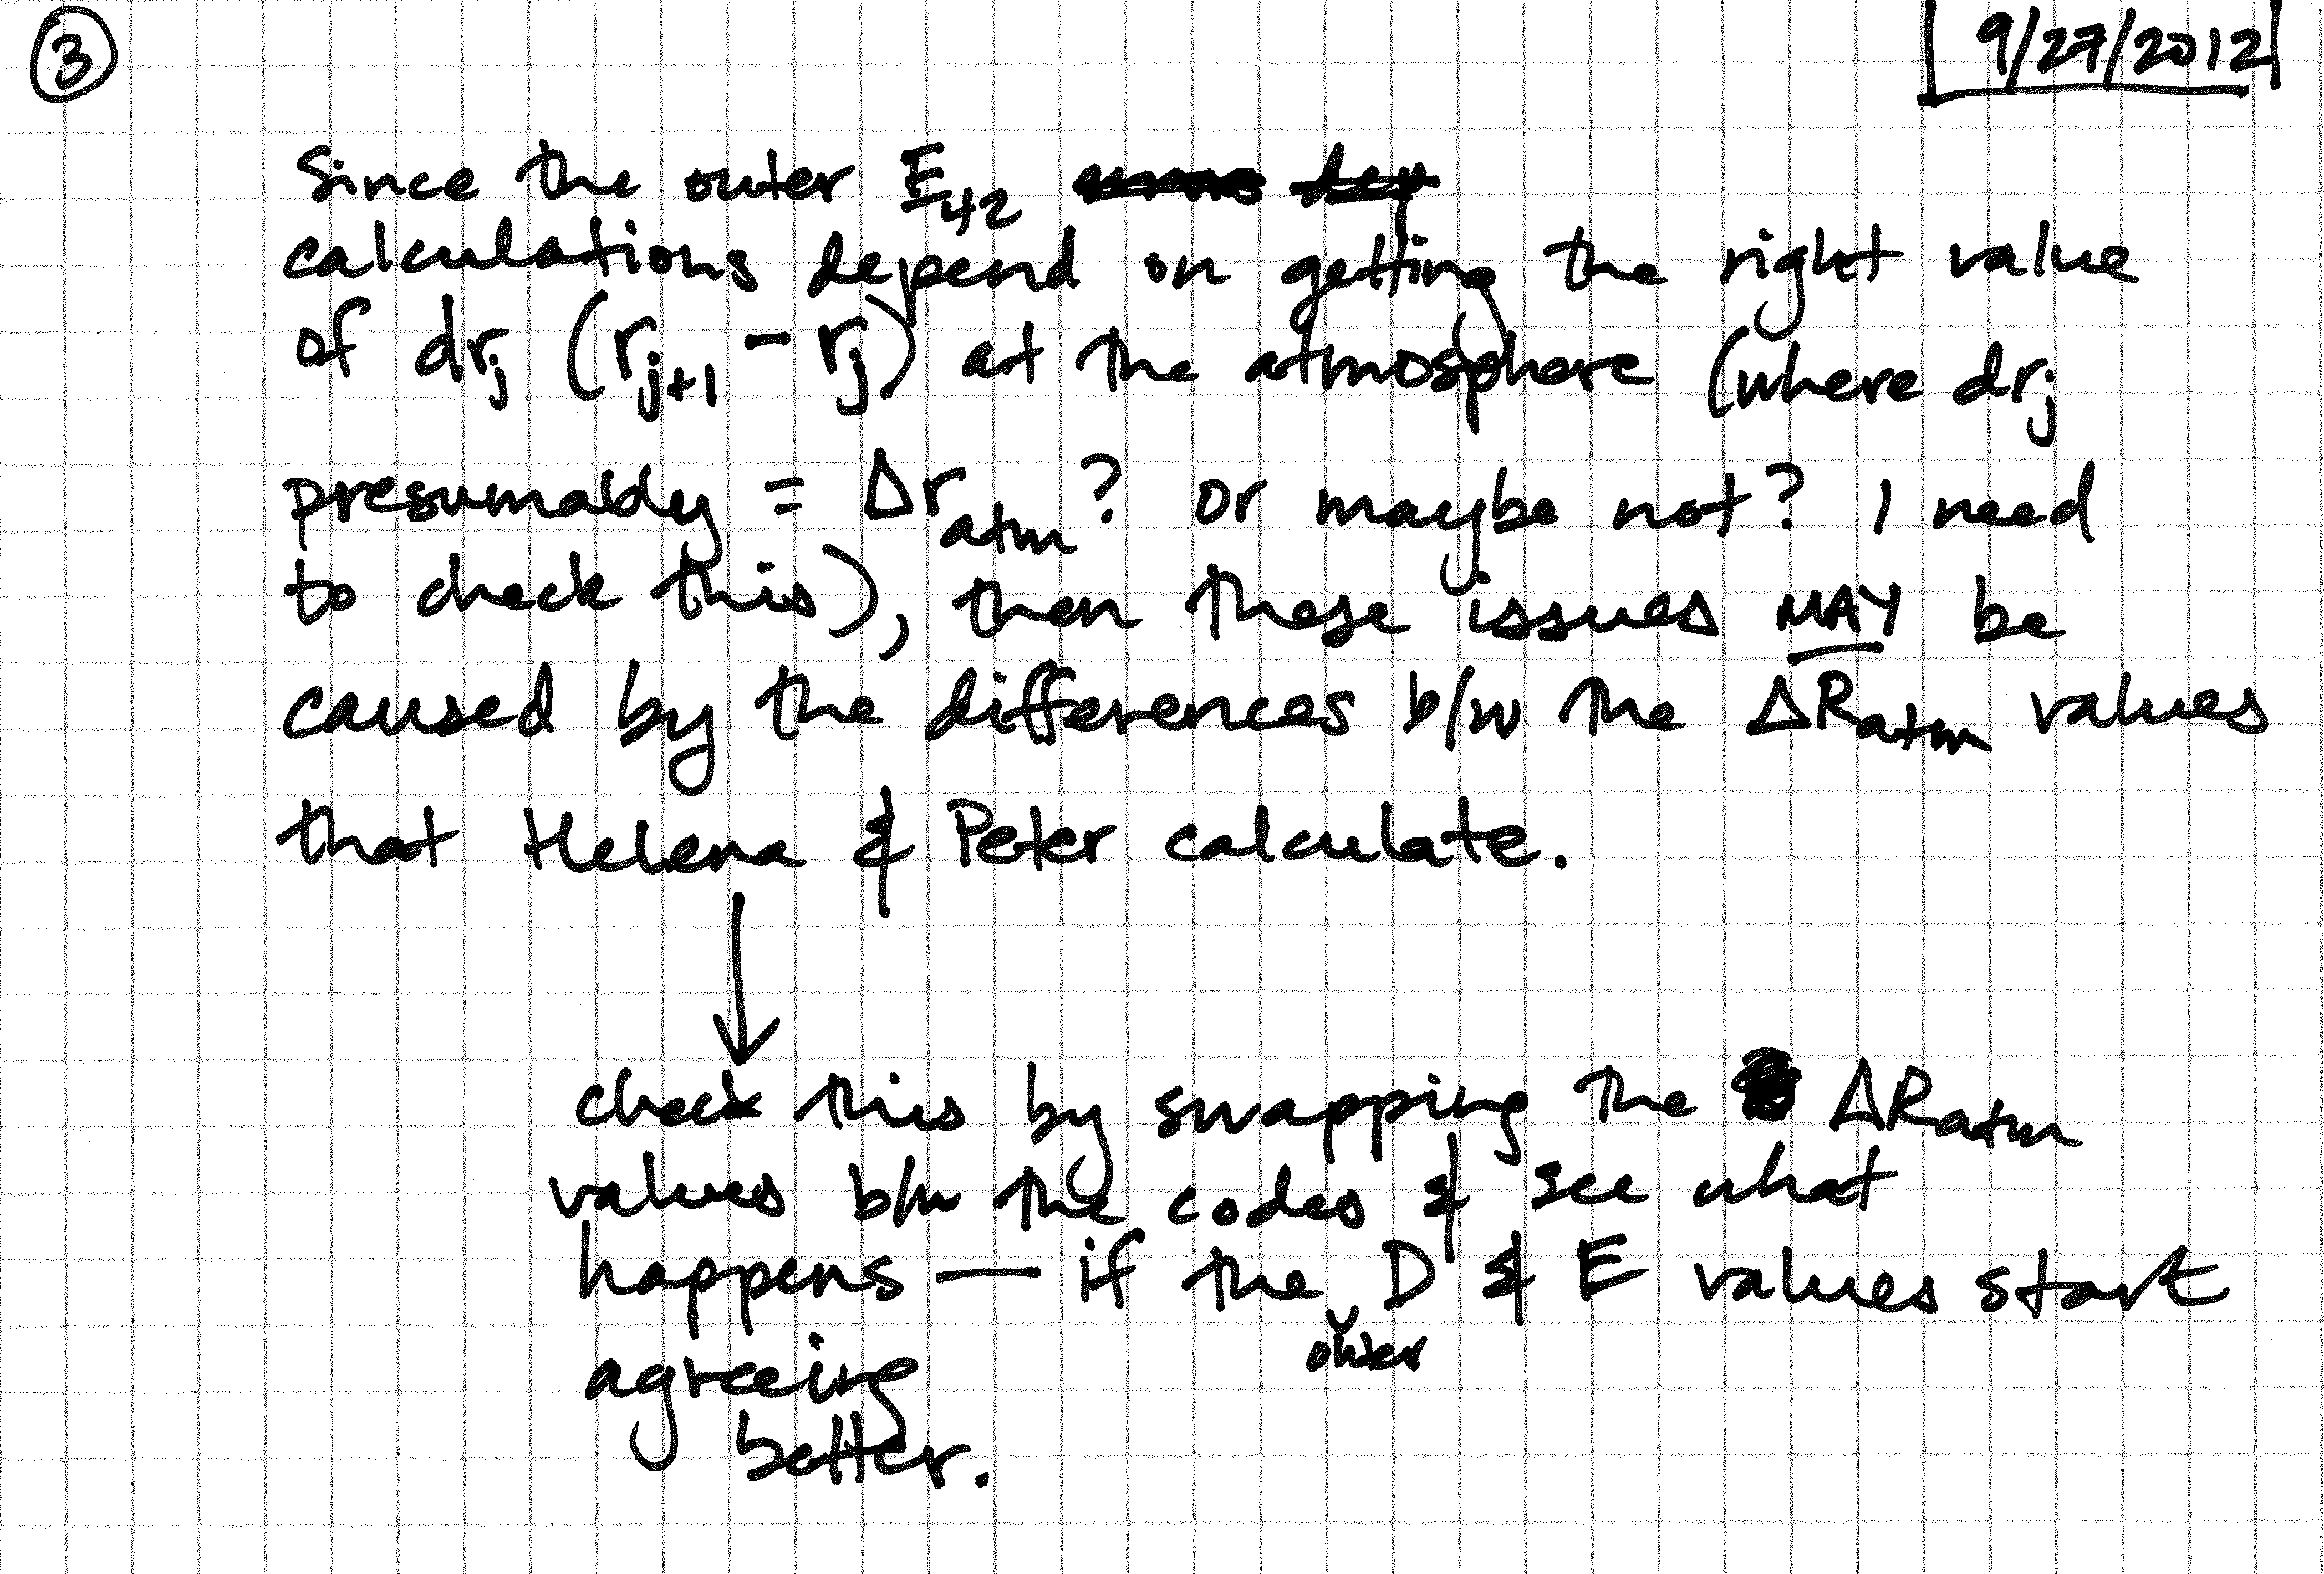 ③ 9/27/2012
Since the outer E₄₂
calculations depend on getting the right value
of drⱼ (rⱼ₊₁ - rⱼ) at the atmosphere (where drⱼ
presumably = Δr_atm? or maybe not? I need
to check this), then these issues MAY be
caused by the differences b/w the ΔR_atm values
that Helena & Peter calculate.
↓
check this by swapping the ΔR_atm
values b/w the codes & see what
happens — if the outer D & E values start
agreeing
better.